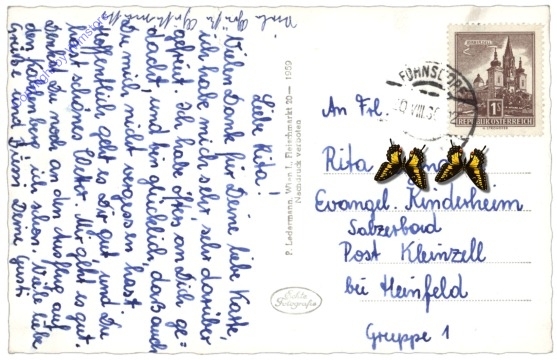 Liebe Rita!
Vielen Dank für Deine liebe Karte,
ich habe mich sehr, sehr darüber
gefreut. Ich habe öfters an Dich ge-
dacht, und bin glücklich, daß auch
Du mich nicht vergessen hast.
Hoffentlich geht es Dir gut und Du
hast schönes Wetter. Mir geht es gut.
Denkst Du noch an den Ausflug auf
den ich schon. Viele liebe
Grüße und Bussi Deine Gusti
P. Ledermann, Wien I., Fleischmarkt 20 — 1959
Nachdruck verboten
Echte
Fotografie
FOHNSDORF
VIII.
1S
REPUBLIK ÖSTERREICH
An Frl.
Rita
Evangel. Kinderheim
Salzerbad
Post Kleinzell
bei Hainfeld
Gruppe 1